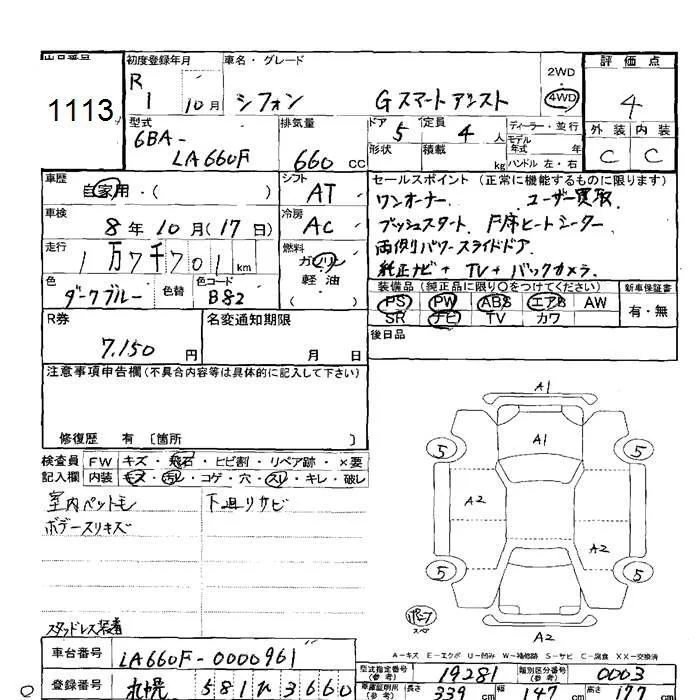 初度登録年月 車名・グレード 評価点
1113
R 1 10月 シフォン Gスマートアシスト 2WD 4WD 4
型式 排気量 ドア 定員 ディーラー・並行 外装 内装
6BA-LA660F 660CC 5 4人 モデル年式 年 C C
形状 積載 kg ハンドル 左・右
車歴 自家用・( ) シフト AT セールスポイント (正常に機能するものに限ります)
ワンオーナー. ユーザー買取.
車検 8年10月(17日) 冷房 AC プッシュスタート. F席ヒートシーター.
走行 1万7千701km 燃料 ガソリン 両側パワースライドドア.
軽油 ( ) 純正ナビ+TV+バックカメラ.
色 ダークブルー 色替 色コード B82 装備品(純正品に限り○をつけてください) 新車保証書
PS PW ABS エアB AW 有・無
SR ナビ TV カワ
R券 7.150円 名変通知期限 月 日 後日品
注意事項申告欄(不具合内容等は具体的に記入して下さい)
修復歴 有 〔箇所 〕
検査員 FW キズ・飛石・ヒビ割・リペア跡・×要
記入欄 内装 キズ・汚レ・コゲ・穴・スレ・キレ・破レ
室内ペットモ 下廻リサビ
ボデースリキズ
スタッドレス装着
A1
A1
5 5
A2
A2
5 5
スペア
A2
A-キズ E-エクボ U-凹み W-補修跡 S-サビ C-腐食 XX-交換済
車台番号 LA660F-0000961 型式指定番号(参考) 19281 類別区分番号(参考) 0003
登録番号 札幌 581 ひ 3660 車庫証明用(参考) 長さ 339cm 幅 147cm 高さ 177cm